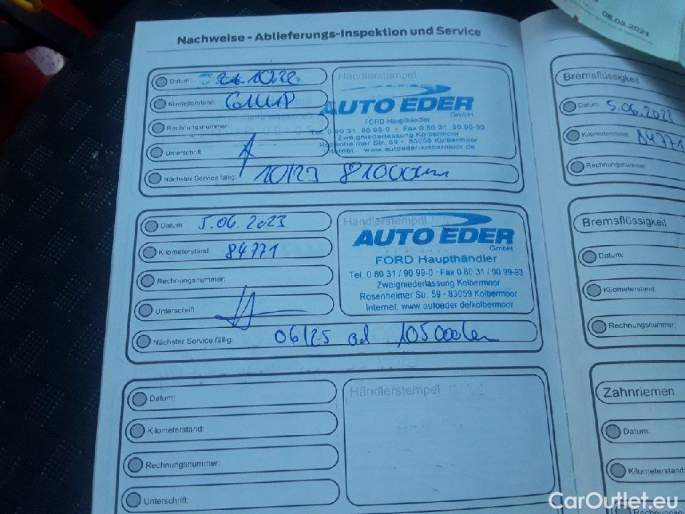 08.03.2021
Nachweise - Ablieferungs-Inspektion und Service
Datum: 26.10.22
Kilometerstand:
Rechnungsnummer:
Unterschrift:
Nächster Service fällig: 10/23 81000km
Händlerstempel
AUTO EDER
GmbH
FORD Haupthändler
Tel. 0 80 31 / 90 99-0 · Fax 0 80 31 / 90 99-93
Zweigniederlassung Kolbermoor
Rosenheimer Str. 59 - 83059 Kolbermoor
Internet: www.autoeder-kolbermoor.de
Datum: 5.06.2023
Kilometerstand: 84771
Rechnungsnummer:
Unterschrift:
Nächster Service fällig: 06/25 od 105000km
Händlerstempel
AUTO EDER
GmbH
FORD Haupthändler
Tel. 0 80 31 / 90 99-0 · Fax 0 80 31 / 90 99-93
Zweigniederlassung Kolbermoor
Rosenheimer Str. 59 - 83059 Kolbermoor
Internet: www.autoeder.de/kolbermoor
Datum:
Kilometerstand:
Rechnungsnummer:
Unterschrift:
Händlerstempel
Bremsflüssigkeit
Datum: 5.06.2023
Kilometerstand: 84771
Rechnungsnummer:
Bremsflüssigkeit
Datum:
Kilometerstand:
Rechnungsnummer:
Zahnriemen
Datum:
Kilometerstand:
Rechnungsnummer:
CarOutlet.eu